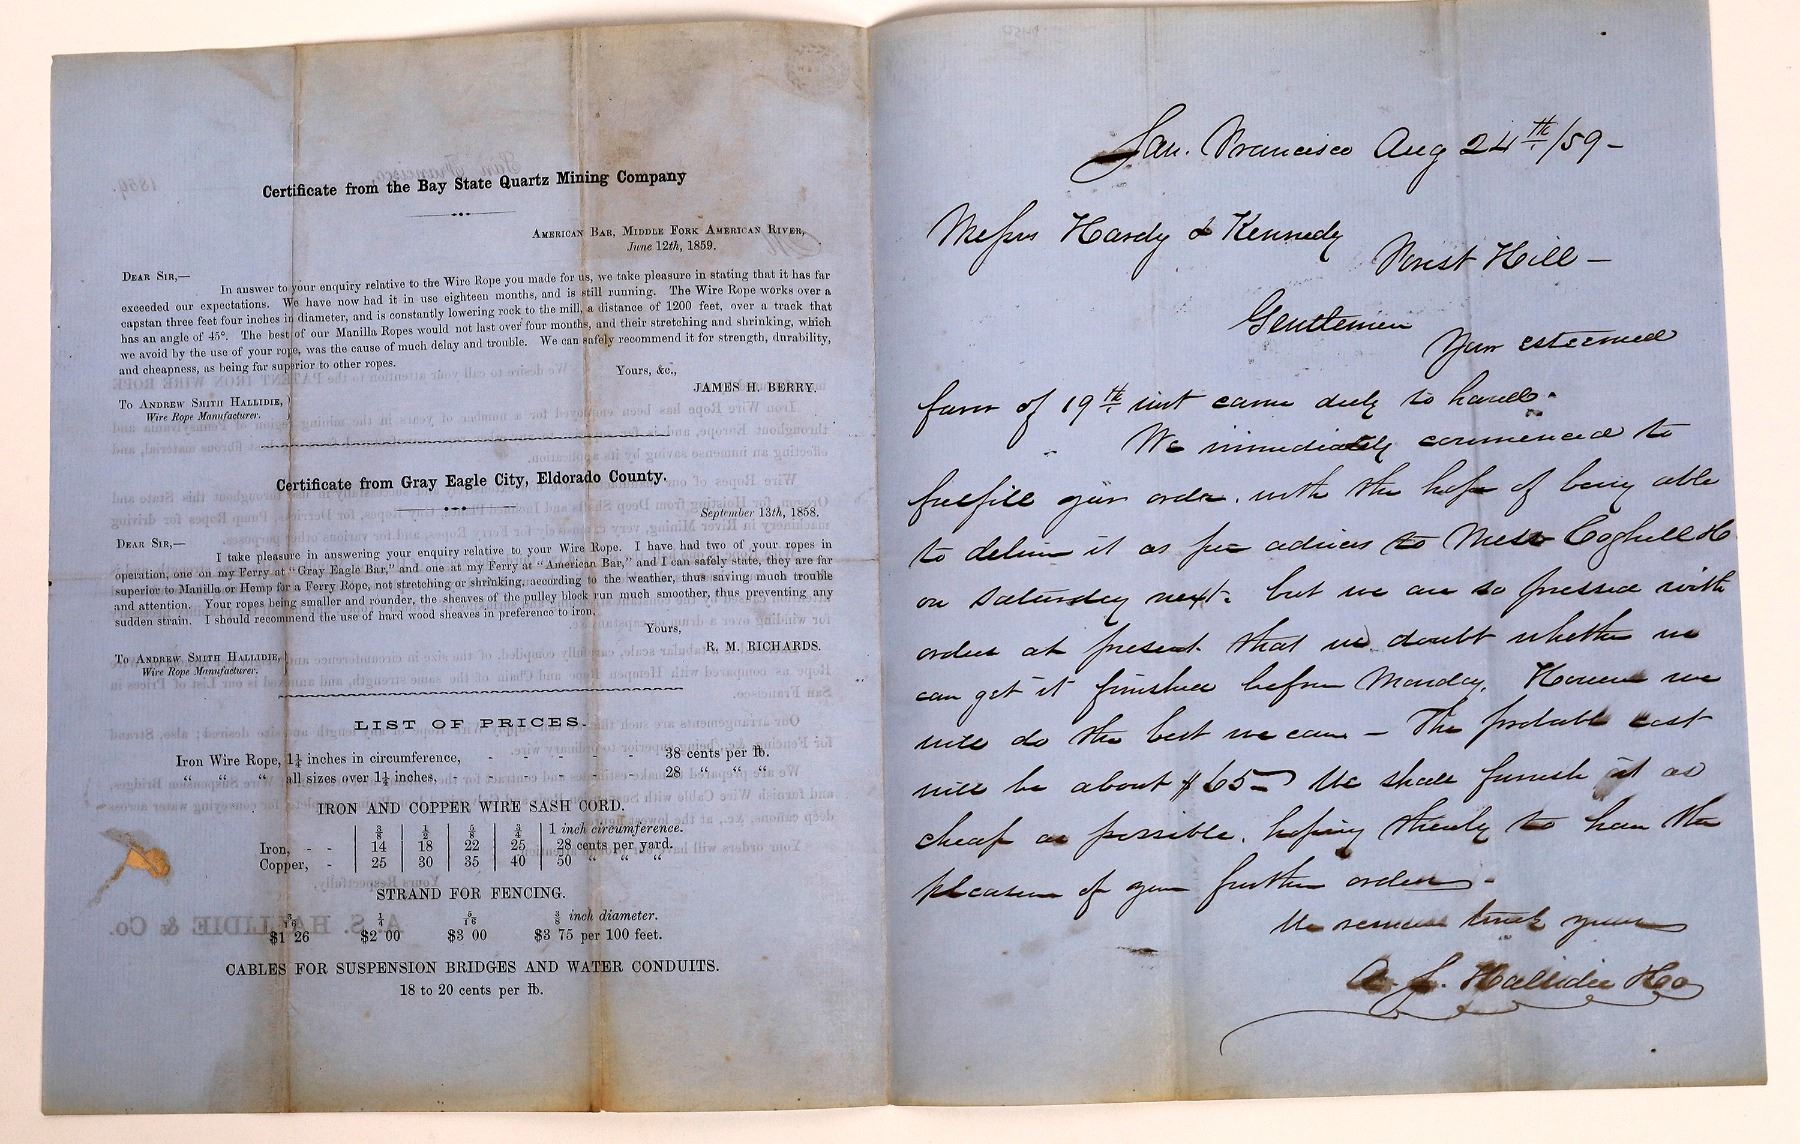 Certificate from the Bay State Quartz Mining Company
American Bar, Middle Fork American River,
June 12th, 1859.
Dear Sir,—
In answer to your enquiry relative to the Wire Rope you made for us, we take pleasure in stating that it has far
exceeded our expectations. We have now had it in use eighteen months, and is still running. The Wire Rope works over a
capstan three feet four inches in diameter, and is constantly lowering rock to the mill, a distance of 1200 feet, over a track that
has an angle of 45°. The best of our Manilla Ropes would not last over four months, and their stretching and shrinking, which
we avoid by the use of your rope, was the cause of much delay and trouble. We can safely recommend it for strength, durability,
and cheapness, as being far superior to other ropes.
Yours, &c.,
JAMES H. BERRY.
To Andrew Smith Hallidie,
Wire Rope Manufacturer.
Certificate from Gray Eagle City, Eldorado County.
September 13th, 1858.
Dear Sir,—
I take pleasure in answering your enquiry relative to your Wire Rope. I have had two of your ropes in
operation, one on my Ferry at "Gray Eagle Bar," and one at my Ferry at "American Bar," and I can safely state, they are far
superior to Manilla or Hemp for a Ferry Rope, not stretching or shrinking, according to the weather, thus saving much trouble
and attention. Your ropes being smaller and rounder, the sheaves of the pulley block run much smoother, thus preventing any
sudden strain. I should recommend the use of hard wood sheaves in preference to iron.
Yours,
R. M. RICHARDS.
To Andrew Smith Hallidie,
Wire Rope Manufacturer.
LIST OF PRICES.
Iron Wire Rope, 1¼ inches in circumference, - - - - - 38 cents per lb.
" " " all sizes over 1¼ inches, - - - - - - 28 " " "
IRON AND COPPER WIRE SASH CORD.
⅜ ½ ⅝ ¾ 1 inch circumference.
Iron, - - 14 18 22 25 28 cents per yard.
Copper, - 25 30 35 40 50 " " "
STRAND FOR FENCING.
3/16 ¼ 5/16 ⅜ inch diameter.
$1 26 $2 00 $3 00 $3 75 per 100 feet.
CABLES FOR SUSPENSION BRIDGES AND WATER CONDUITS.
18 to 20 cents per lb.
San Francisco Aug 24th/59 -
Messrs Hardy & Kennedy
Forest Hill -
Gentlemen
Your esteemed
favor of 19th inst came duly to hand.
We immediately commenced to
fulfill your order. with the hope of being able
to deliver it as per advices to Messrs Coghill & Co.
on Saturday next. but we are so pressed with
orders at present that we doubt whether we
can get it finished before Monday. However we
will do the best we can - The probable cost
will be about $65 - We shall furnish it as
cheap as possible. hoping thereby to have the
pleasure of your further orders -
We remain truly yours
A. S. Hallidie & Co